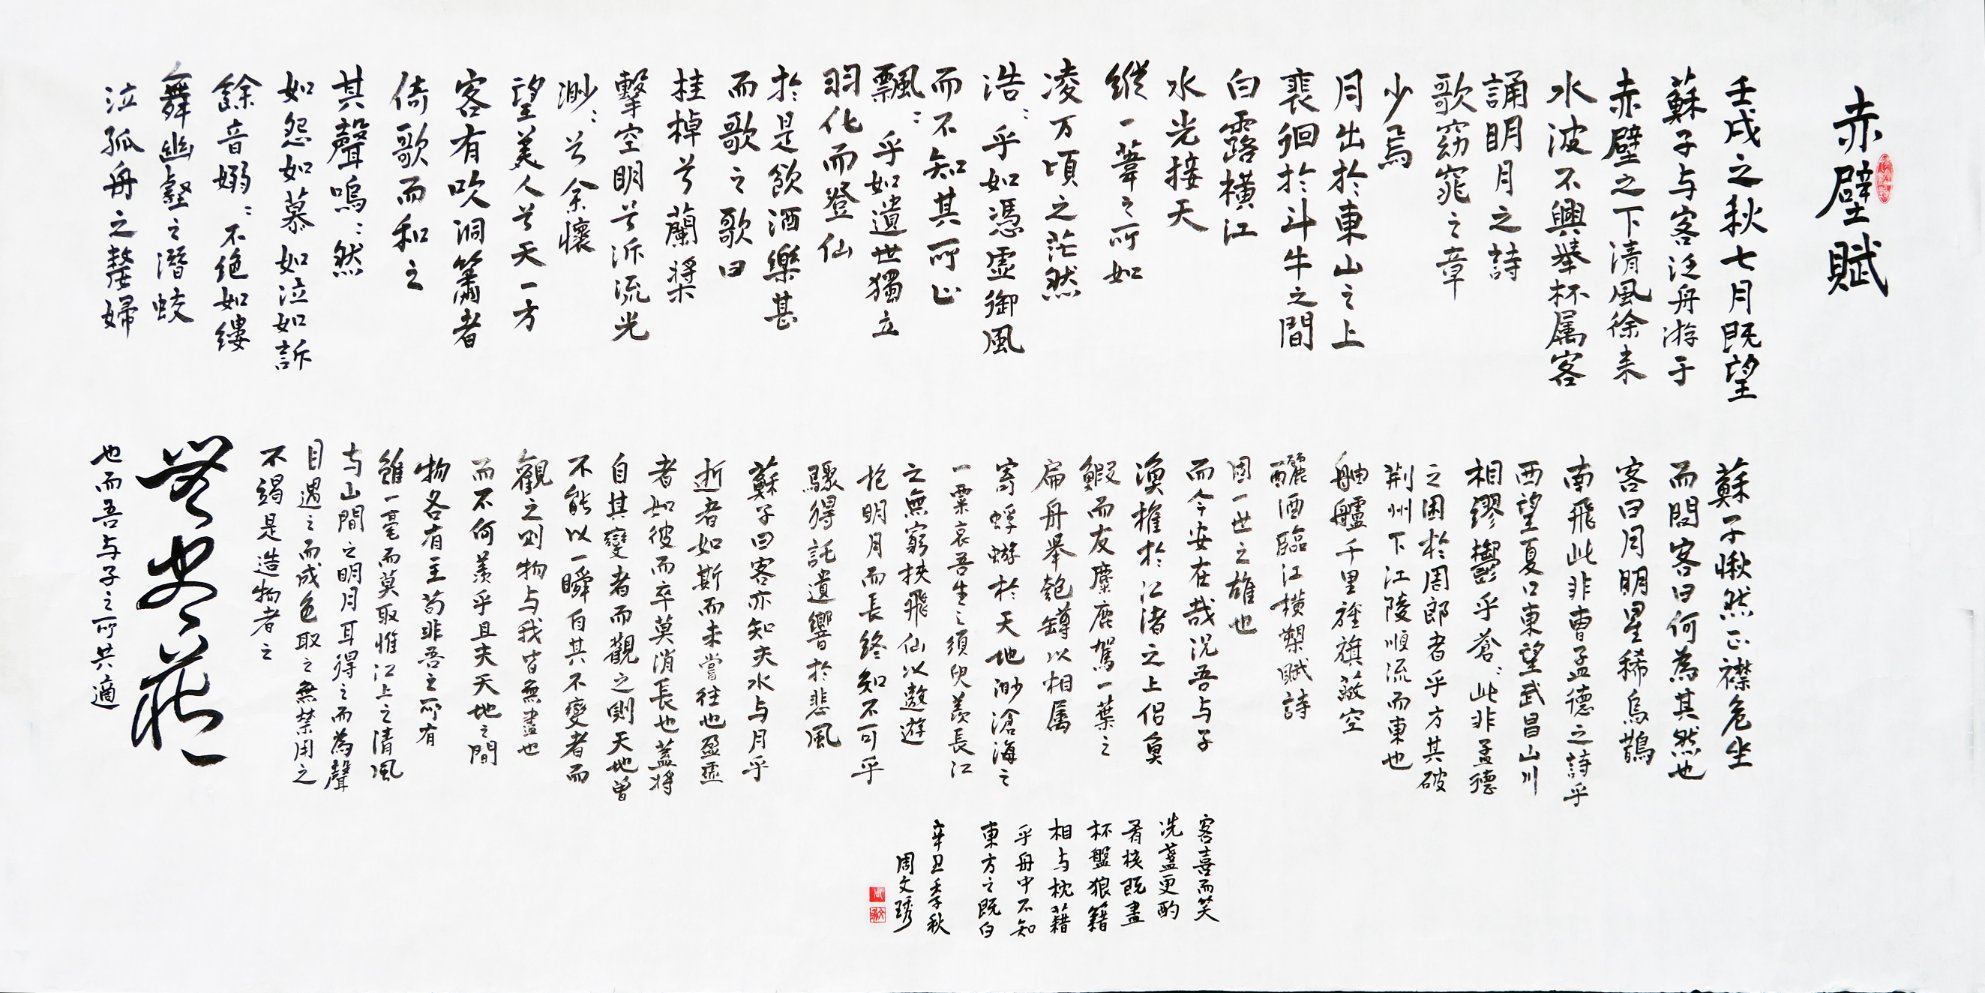 赤壁賦
壬戌之秋七月既望
蘇子与客泛舟游于
赤壁之下清風徐来
水波不興舉杯属客
誦明月之詩
歌窈窕之章
少焉
月出於東山之上
裴徊於斗牛之間
白露橫江
水光接天
縱一葦之所如
凌万頃之茫然
浩:乎如憑虛御風
而不知其所止
飄:乎如遺世獨立
羽化而登仙
於是飲酒樂甚
而歌之歌曰
桂棹兮蘭槳
擊空明兮泝流光
渺:兮余懷
望美人兮天一方
客有吹洞簫者
倚歌而和之
其聲嗚:然
如怨如慕如泣如訴
餘音嫋:不絶如缕
舞幽壑之潛蛟
泣孤舟之嫠婦
蘇子愀然正襟危坐
而問客曰何為其然也
客曰月明星稀烏鵲
南飛此非曹孟德之詩乎
西望夏口東望武昌山川
相繆鬱乎蒼:此非孟德
之困於周郎者乎方其破
荆州下江陵順流而東也
舳艫千里旌旗蔽空
釃酒臨江橫槊賦詩
固一世之雄也
而今安在哉況吾与子
漁樵於江渚之上侶魚
鰕而友麋鹿駕一葉之
扁舟舉匏罇以相属
寄蜉蝣於天地渺滄海之
一粟哀吾生之須臾羨長江
之無窮挾飛仙以遨遊
抱明月而長終知不可乎
驟得託遺響於悲風
蘇子曰客亦知夫水与月乎
逝者如斯而未嘗往也盈虛
者如彼而卒莫消長也蓋将
自其變者而觀之則天地曾
不能以一瞬自其不變者而
觀之则物与我皆無盡也
而不何羨乎且夫天地之間
物各有主苟非吾之所有
雖一毫而莫取惟江上之清風
与山間之明月耳得之而為聲
目遇之而成色取之無禁用之
不竭是造物者之
無盡藏
也而吾与子之所共適
客喜而笑
洗盞更酌
肴核既盡
杯盤狼籍
相与枕藉
乎舟中不知
東方之既白
辛丑季秋
周文琇